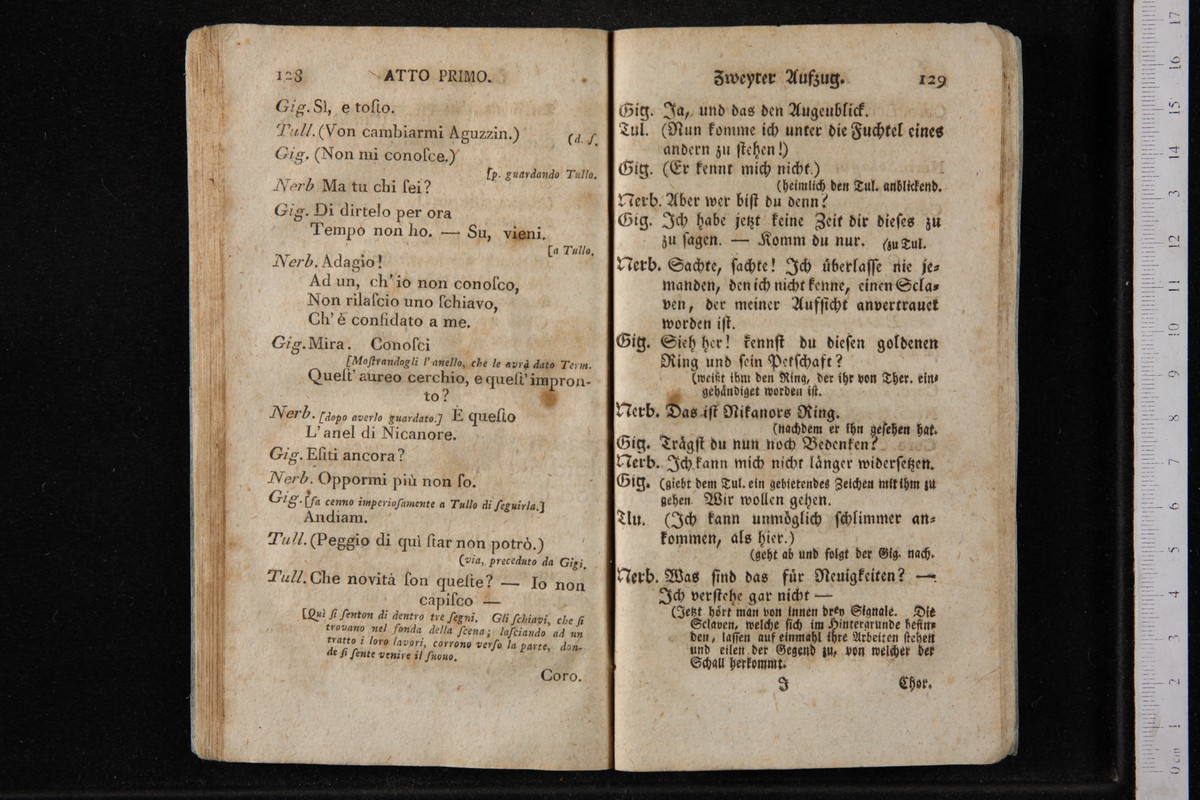 128 ATTO PRIMO.
Gig. Sì, e toſto.
Tull. (Von cambiarmi Aguzzin.)
(d. ſ.
Gig. (Non mi conoſce.)
[p. guardando Tullo.
Nerb. Ma tu chi ſei?
Gig. Di dirtelo per ora
Tempo non ho. — Su, vieni.
[a Tullo.
Nerb. Adagio!
Ad un, ch' io non conoſco,
Non rilaſcio uno ſchiavo,
Ch' è confidato a me.
Gig. Mira. Conoſci
[Moſtrandogli l' anello, che le avrà dato Term.
Queſt' aureo cerchio, e queſt' impron-
to?
Nerb. [dopo averlo guardato.] È queſto
L' anel di Nicanore.
Gig. Eſiti ancora?
Nerb. Oppormi più non ſo.
Gig. [fa cenno imperioſamente a Tullo di ſeguirla.]
Andiam.
Tull. (Peggio di quì ſtar non potrò.)
(via, preceduto da Gigi.
Tull. Che novità ſon queſte? — Io non
capiſco —
[Quì ſi ſenton di dentro tre ſegni. Gli ſchiavi, che ſi
trovano nel fonda della ſcena; laſciando ad un
tratto i loro lavori, corrono verſo la parte, don-
de ſi ſente venire il ſuono.
Coro.
Zweyter Aufzug. 129
Gig. Ja, und das den Augenblick.
Tul. (Nun komme ich unter die Fuchtel eines
andern zu ſtehen!)
Gig. (Er kennt mich nicht.)
(heimlich den Tul. anblickend.
Nerb. Aber wer biſt du denn?
Gig. Ich habe jetzt keine Zeit dir dieſes zu
zu ſagen. — Komm du nur. (zu Tul.
Nerb. Sachte, ſachte! Ich überlaſſe nie je-
manden, den ich nicht kenne, einen Scla-
ven, der meiner Aufſicht anvertrauet
worden iſt.
Gig. Sieh her! kennſt du dieſen goldenen
Ring und ſein Petſchaft?
(weißt ihm den Ring, der ihr von Ther. ein-
gehändiget worden iſt.
Nerb. Das iſt Nikanors Ring.
(nachdem er ihn geſehen hat.
Gig. Trägſt du nun noch Bedenken?
Nerb. Ich kann mich nicht länger widerſetzen.
Gig. (giebt dem Tul. ein gebietendes Zeichen mit ihm zu
gehen. Wir wollen gehen.
Tlu. (Ich kann unmöglich ſchlimmer an-
kommen, als hier.)
(geht ab und folgt der Gig. nach.
Nerb. Was ſind das für Neuigkeiten? —
Ich verſtehe gar nicht —
(Jetzt hört man von innen drey Signale. Die
Sclaven, welche ſich im Hintergrunde befin-
den, laſſen auf einmahl ihre Arbeiten ſtehen
und eilen der Gegend zu, von welcher der
Schall herkommt.
J Chor.
0 cm 1 2 3 4 5 6 7 8 9 10 11 12 13 14 15 16 17